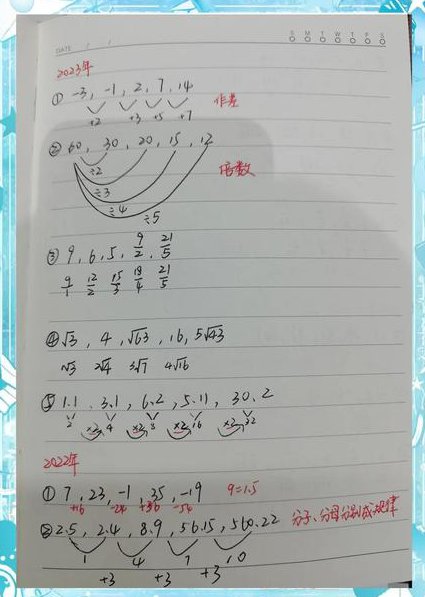 DATE / /
S M T W T F S
2023年
① -3, -1, 2, 7, 14
+2 +3 +5 +7 作差
② 60, 30, 20, 15, 12
÷2
÷3 倍数
÷4
÷5
③ 9, 6, 5, 9/2, 21/5
9/1 12/2 15/3 18/4 21/5
④ √3, 4, √63, 16, 5√43
√3 2√4 3√7 4√16
⑤ 1.1, 3.1, 6.2, 5.11, 30.2
2 ×2 4 ×2 8 ×2 16 ×2 32
2022年
① 7, 23, -1, 35, -19 q=1.5
+16 -24 +36 -54
② 2.5, 2.4, 8.9, 56.15, 560.22 分子、分母分别成规律
1 4 7 10
+3 +3 +3